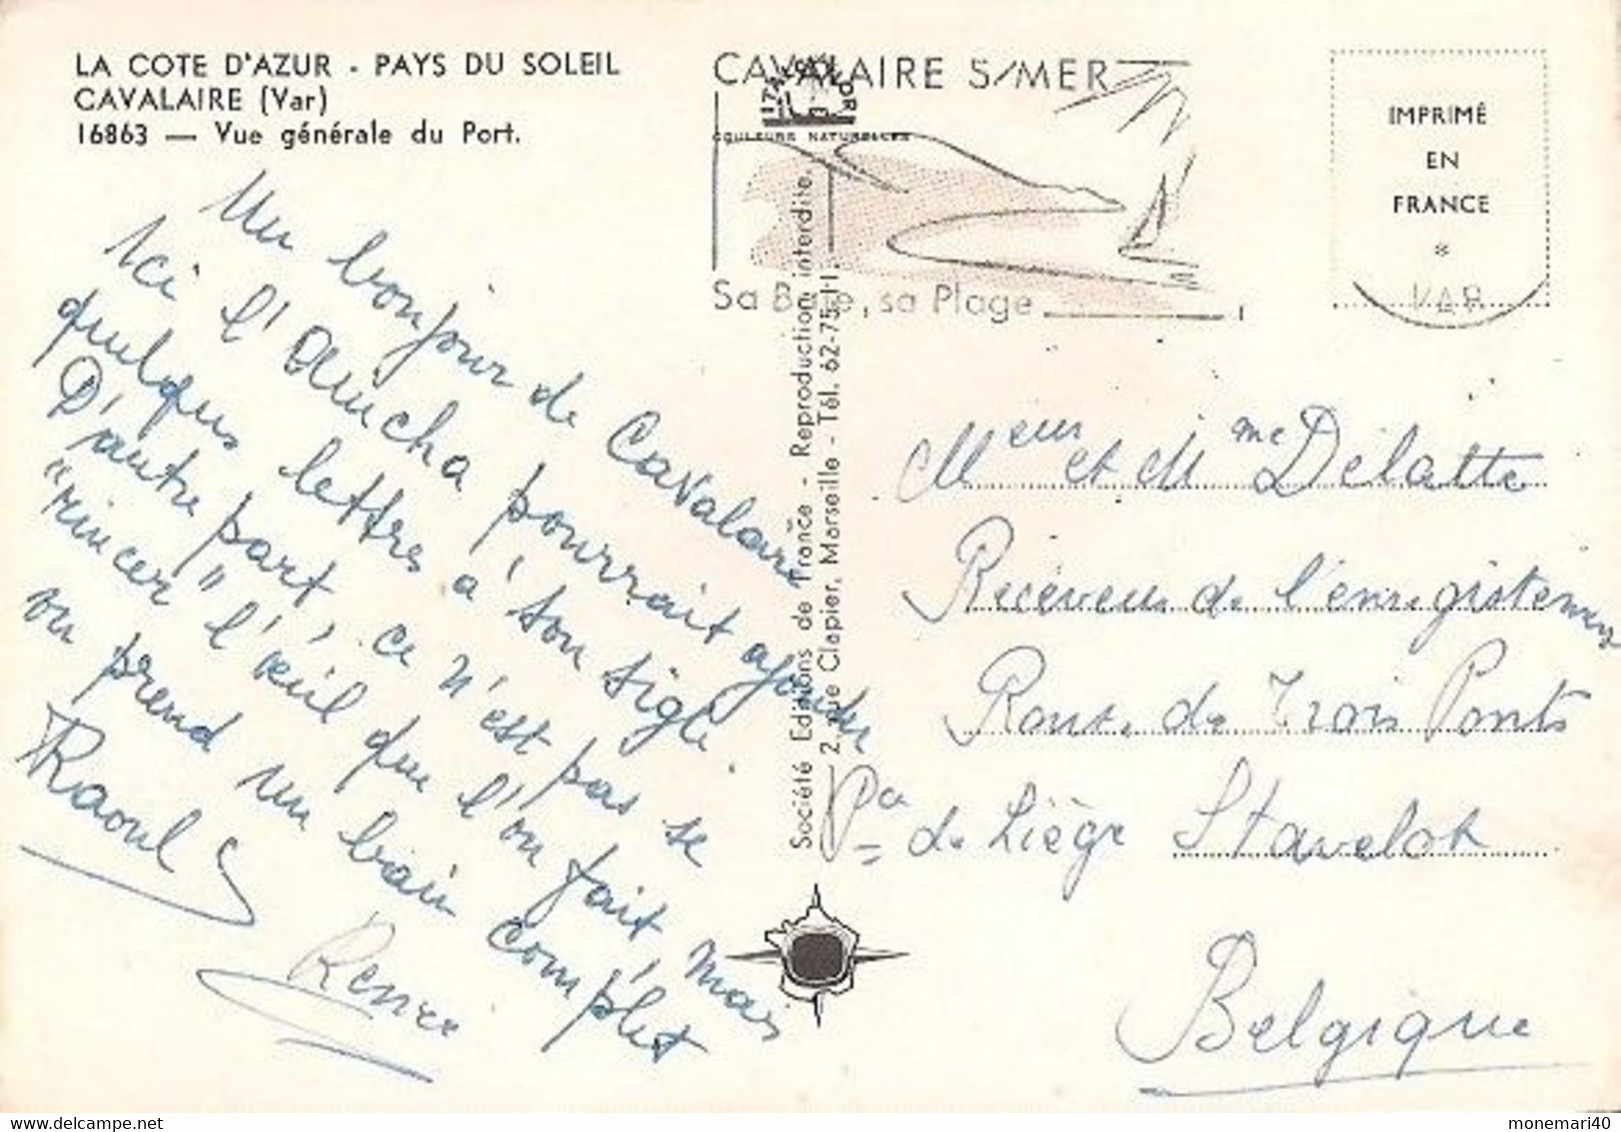 LA COTE D'AZUR - PAYS DU SOLEIL
CAVALAIRE (Var)
16863 — Vue générale du Port.
CAVALAIRE S/MER
ITALCOLOR
COULEURS NATURELLES
Sa Baie, sa Plage
IMPRIMÉ
EN
FRANCE
*
VAR
Un bonjour de Cavalaire
Ici l' pourrait ajouter
quelques lettres à son sigle
D'autre part, ce n'est pas se
"rincer" l'œil que l'on fait, mais
on prend un bain complet
Raoul
Renée
Société Editions de France - Reproduction interdite.
2, Rue Clapier, Marseille - Tél. 62-75-11.
Meur et Mme Delatte
Receveur de l'enregistement
Route de Trois Ponts
Pce de Liège Stavelot
Belgique
monemari40